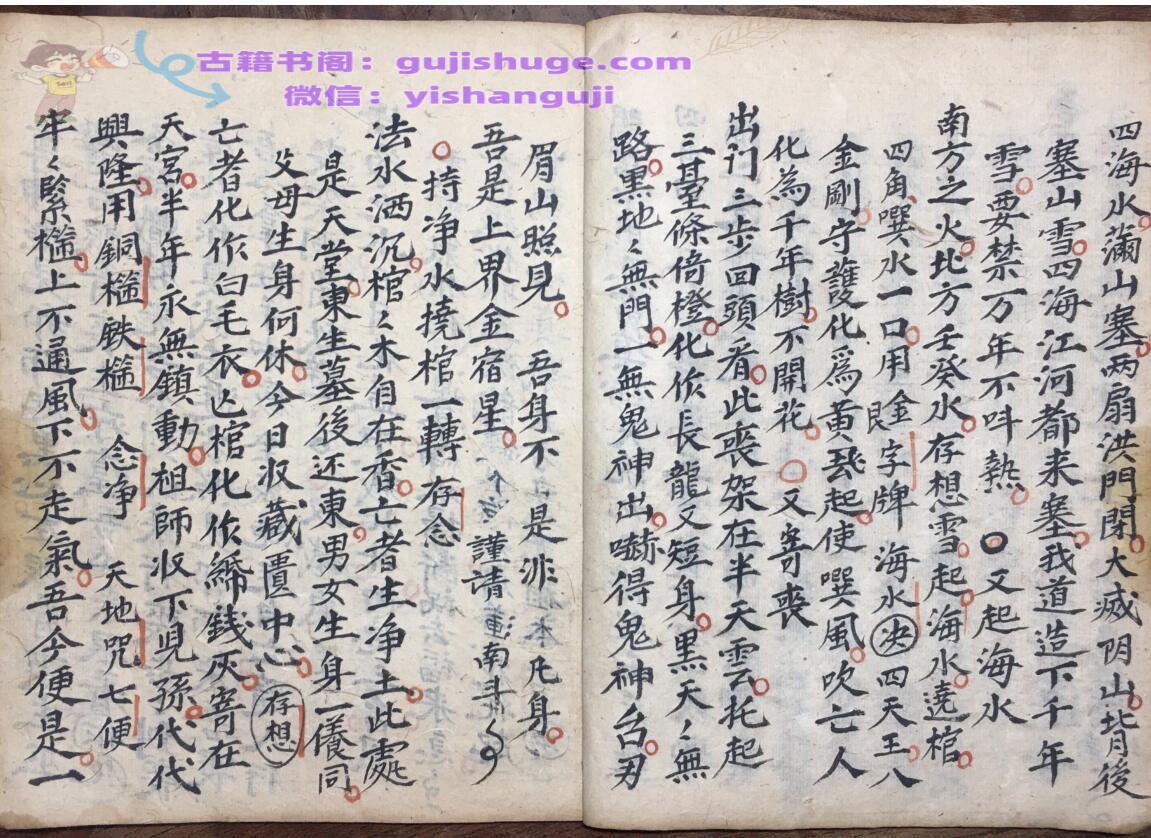 古籍书阁：gujishuge.com
微信：yishanguji
四海水滿山塞两扇洪門閉大威阴山背後
塞山雪四海江河都来塞我道造下千年
雪要禁万年不呌熱又起海水
南方之火北方壬癸水存想雪起海水遶棺
四角噀水一口用金字牌海水决四天王八
艮
金剛守護化爲黄飛起使噀風吹亡人
化為千年樹不開花又寄喪
出门三步回頭看此喪架在半天雲托起
三臺條倚橙化作長龍又短身黑天〻無
路黑地〻無門一無鬼神出嚇得鬼神台刃
眉山照見吾身不是非凡身
吾是上界金宿星謹請南斗
持净水撓棺一轉存念
法水洒沉棺〻木自在香亡者生净土此處
是天堂東生墓後还東男女生身一儀同
父母生身何休今日收藏匱中心存想
亡者化作白毛衣亡棺化作綿錢灰寄在
天宫半年永無鎮動祖師收下児孫代代
興隆用銅槛鉄槛念净天地咒七便
牢〻緊槛上不通風下不走氣吾今便是一